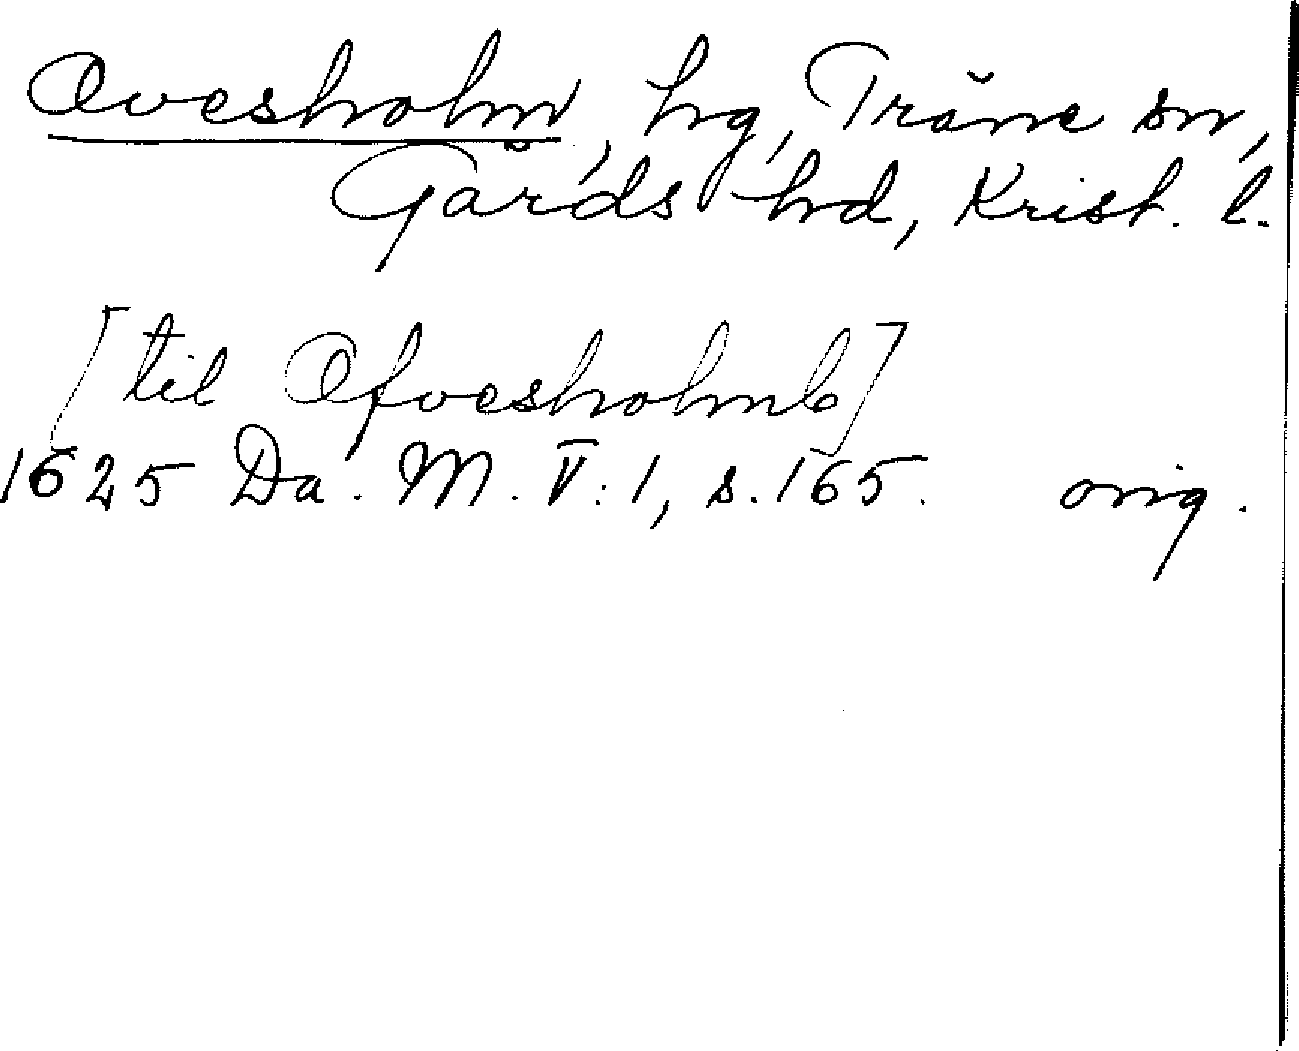 Ovesholm, hg, Träne sn,
Gärds hd, Krist. l.
[til Offvesholmb]
1625 Da. M. V:1, s. 165. orig.